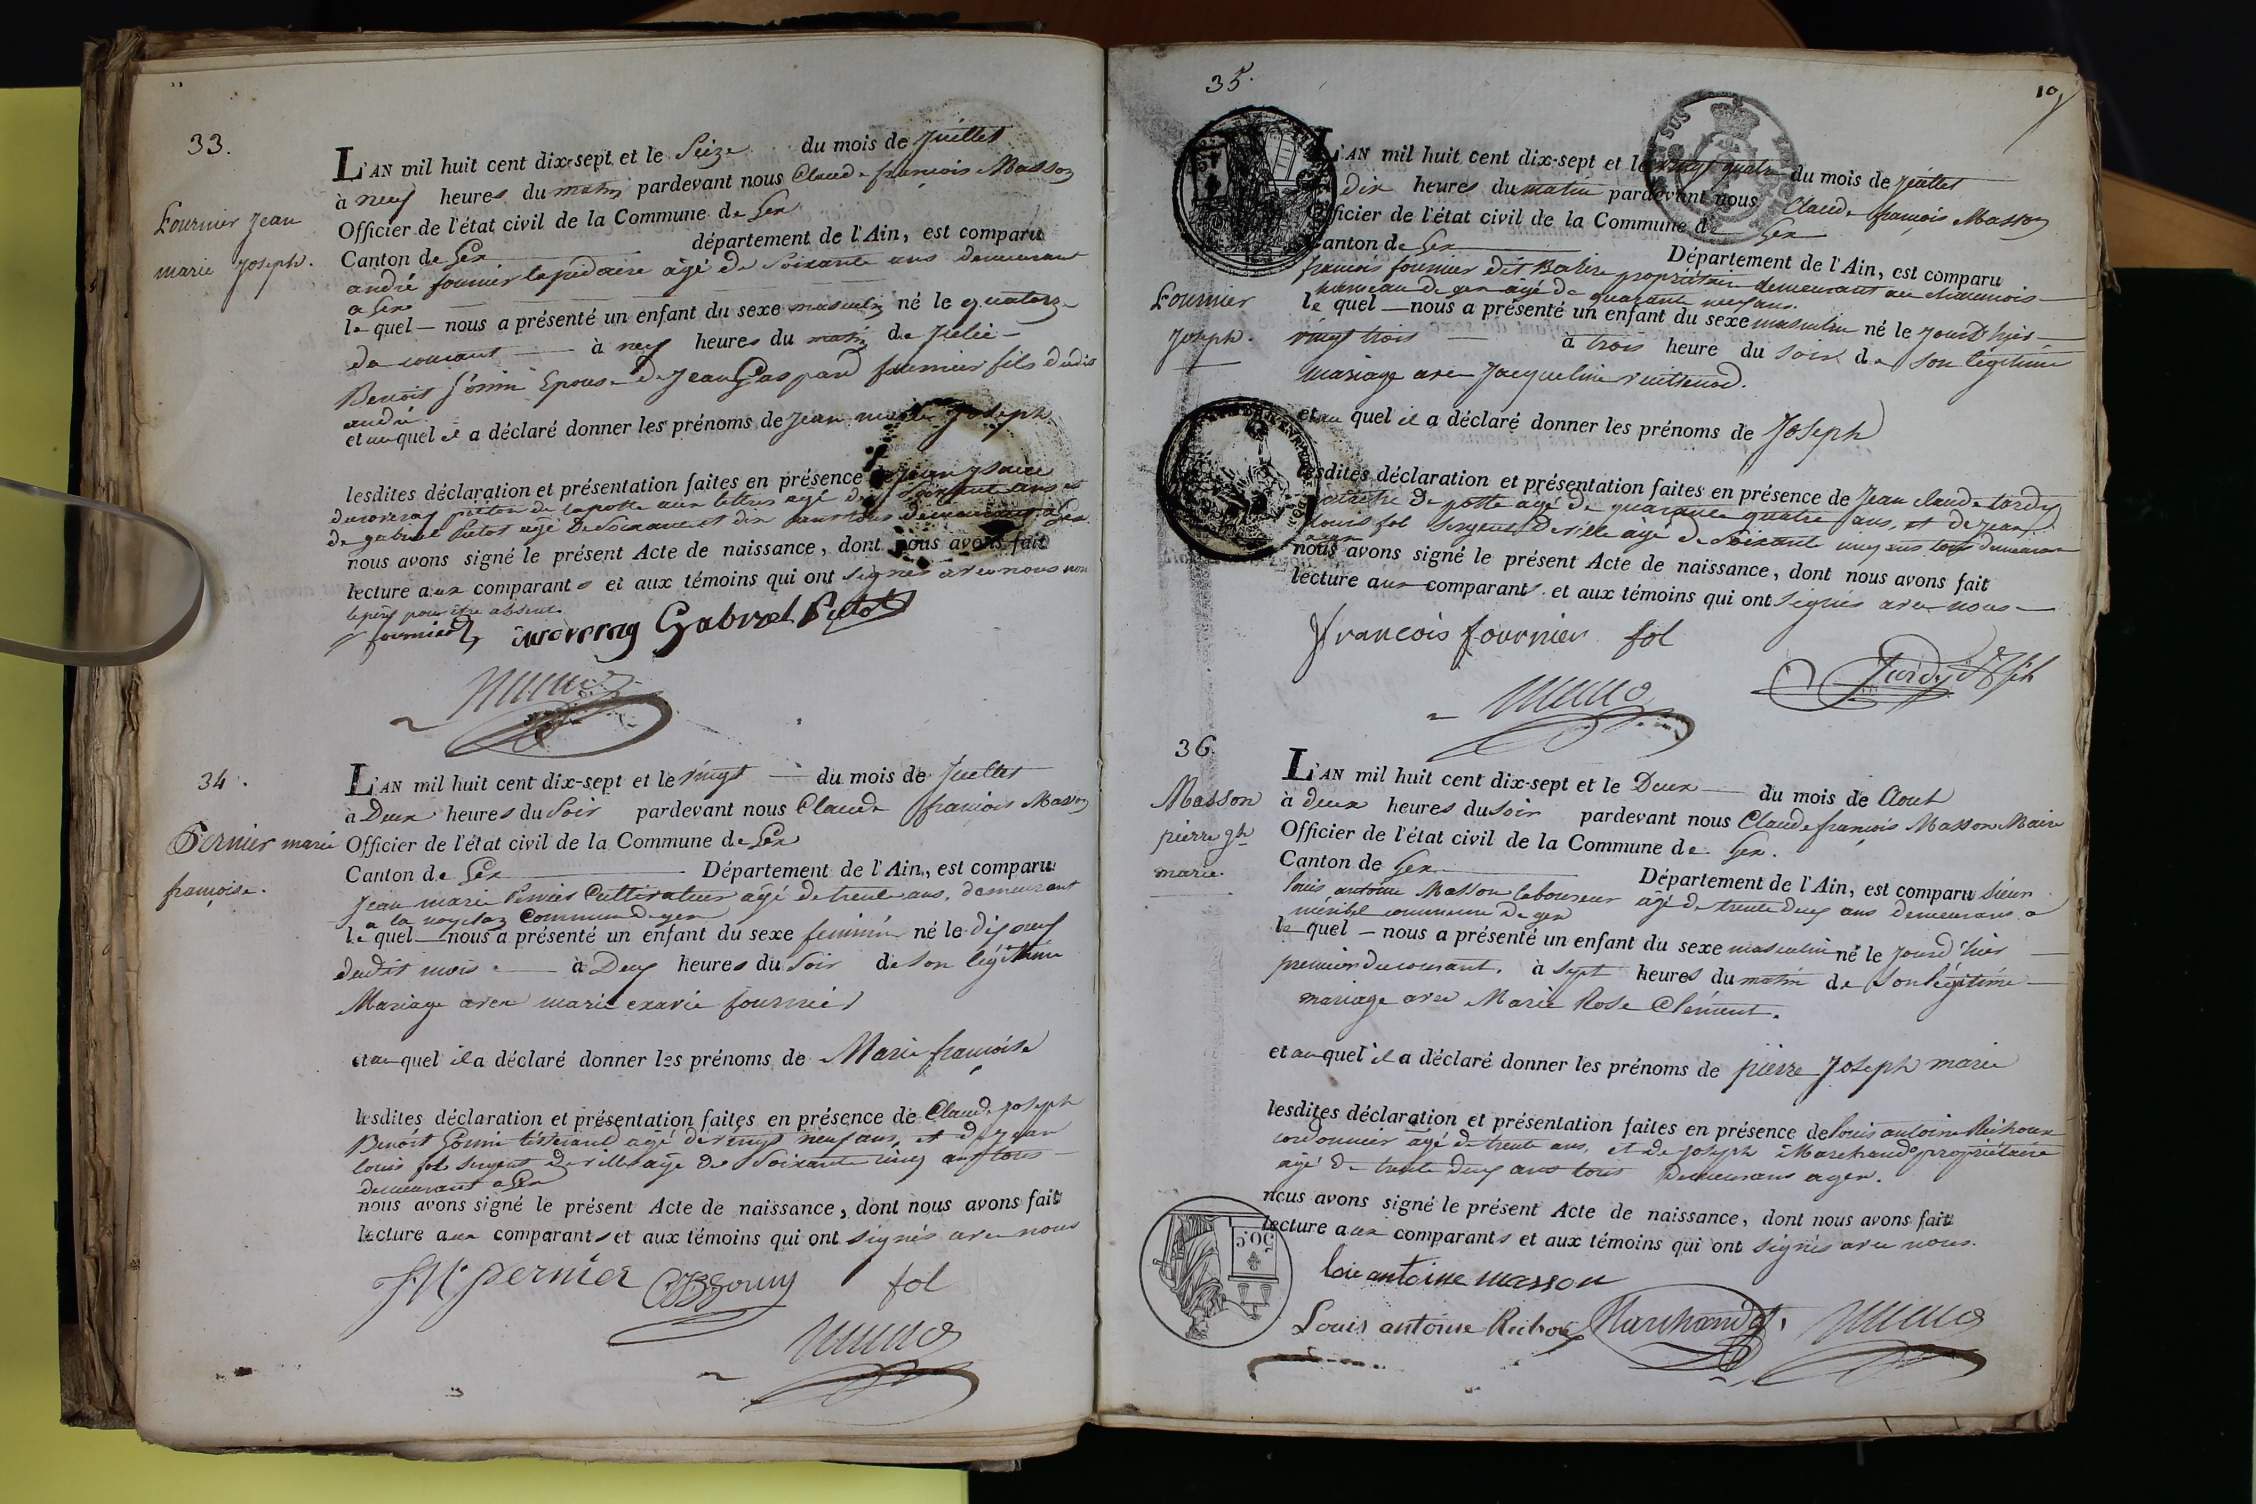 33.
Fournier Jean
marie Joseph.
L'AN mil huit cent dix-sept et le Seize du mois de Juillet
à neuf heures du matin pardevant nous Claude françois Masson
Officier de l'état civil de la Commune de Gex
Canton de Gex département de l'Ain, est comparu
andré fournier lapidaire âgé de Soixante ans demeurant
a Gex
le quel nous a présenté un enfant du sexe masculin né le quatorze
du courant à neuf heures du matin de
Benoit Epouse de Jean Gaspard fournier fils dudit
andré
et auquel il a déclaré donner les prénoms de Jean marie Joseph
lesdites déclaration et présentation faites en présence de Jean
Duroveray piéton de la poste aux lettres agé de Soixante ans et
de gabriel Pelot agé de Soixante et dix ans tous demeurant a Gex
nous avons signé le présent Acte de naissance, dont nous avons fait
lecture aux comparants et aux témoins qui ont signés avec nous non
le père pour être absent.
fournier duroveray Gabriel Pelot
34.
Pernier marie
françoise.
L'AN mil huit cent dix-sept et le vingt du mois de Juillet
à Deux heures du Soir pardevant nous Claude françois Masson
Officier de l'état civil de la Commune de Gex
Canton de Gex Département de l'Ain, est comparu
Jean marie Pernier Cultivateur agé de trente ans, demeurant
a la Commune de gex
le quel nous a présenté un enfant du sexe feminin né le dix neuf
dudit mois à Deux heures du Soir de Son légitime
Mariage avec marie exavie fournier
et auquel il a déclaré donner les prénoms de Marie françoise
lesdites déclaration et présentation faites en présence de Claude Joseph
Benoit tisserand agé de vingt neuf ans, et de Jean
louis fol Sergent de ville agé de Soixante cinq ans tous
demeurant a Gex
nous avons signé le présent Acte de naissance, dont nous avons fait
lecture aux comparants et aux témoins qui ont signés avec nous
J M pernier fol
35.
10
Fournier
Joseph.
L'AN mil huit cent dix-sept et le vingt quatre du mois de Juillet
dix heures du matin pardevant nous Claude françois Masson
Officier de l'état civil de la Commune de Gex
Canton de Gex Département de l'Ain, est comparu
françois fournier dit propriétaire demeurant au
hameau de gex agé de quarante neuf ans.
le quel nous a présenté un enfant du sexe masculin né le jourd'hier
vingt trois à trois heure du soir de son legitime
mariage avec Jacqueline vuillenod.
et au quel il a déclaré donner les prénoms de Joseph
lesdites déclaration et présentation faites en présence de Jean claude tardy
de poste agé de quarante quatre ans, et de Jean
louis fol Sergent de ville agé de Soixante cinq ans tous demeurant
a gex
nous avons signé le présent Acte de naissance, dont nous avons fait
lecture aux comparants et aux témoins qui ont signés avec nous
francois fournier fol
36.
Masson
pierre jh
marie.
L'AN mil huit cent dix-sept et le Deux du mois de Aout
à deux heures du Soir pardevant nous Claude françois Masson Maire
Officier de l'état civil de la Commune de Gex.
Canton de Gex Département de l'Ain, est comparu Sieur
louis antoine Masson laboureur agé de trente deux ans demeurans a
méribel commune de gex
le quel nous a présenté un enfant du sexe masculin né le jourd'hier
premier du courant, à sept heures du matin de Son légitime
mariage avec Marie Rose Clément.
et auquel il a déclaré donner les prénoms de pierre Joseph marie
lesdites déclaration et présentation faites en présence de louis antoine
cordonnier agé de trente ans, et de Joseph Marchand propriétaire
agé de trente deux ans tous Demeurans a gex.
nous avons signé le présent Acte de naissance, dont nous avons fait
lecture aux comparants et aux témoins qui ont signés avec nous.
50C
loui antoine masson
Louis antoine Marchand